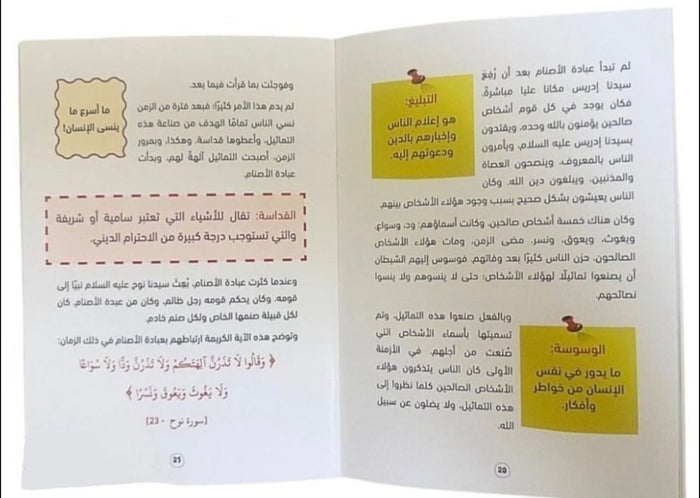 لم تبدأ عبادة الأصنام بعد أن رُفِعَ
سيدنا إدريس مكانا عليا مباشرةً،
فكان يوجد في كل قوم أشخاص
صالحين يؤمنون بالله وحده، ويقتدون
بسيدنا إدريس عليه السلام، ويأمرون
الناس بالمعروف، وينصحون العصاة
والمذنبين، ويبلغون دين الله. وكان
الناس يعيشون بشكل صحيح بسبب وجود هؤلاء الأشخاص بينهم.
التبليغ:
هو إعلام الناس
وإخبارهم بالدين
ودعوتهم إليه.
وكان هناك خمسة أشخاص صالحين، وكانت أسماؤهم: ود، وسواع،
ويغوث، ويعوق، ونسر. مضى الزمن، ومات هؤلاء الأشخاص
الصالحون. حزن الناس كثيرًا بعد وفاتهم. فوسوس إليهم الشيطان
أن يصنعوا تماثيلًا لهؤلاء الأشخاص؛ حتى لا ينسوهم ولا ينسوا
نصائحهم.
وبالفعل صنعوا هذه التماثيل، وتم
تسميتها بأسماء الأشخاص التي
صُنعت من أجلهم. في الأزمنة
الأولى كان الناس يتذكرون هؤلاء
الأشخاص الصالحين كلما نظروا إلى
هذه التماثيل، ولا يضلون عن سبيل
الله.
الوسوسة:
ما يدور في نفس
الإنسان من خواطر
وأفكار.
20
وفوجئت بما قرأت فيما بعد.
لم يدم هذا الأمر كثيرًا؛ فبعد فترة من الزمن
نسي الناس تمامًا الهدف من صناعة هذه
التماثيل، وأعطوها قداسة. وهكذا، وبمرور
الزمن، أصبحت التماثيل آلهةً لهم، وبدأت
عبادة الأصنام.
ما أسرع ما
ينسى الإنسان!
القداسة: تقال للأشياء التي تعتبر سامية أو شريفة
والتي تستوجب درجة كبيرة من الاحترام الديني.
وعندما كثرت عبادة الأصنام، بُعِثَ سيدنا نوح عليه السلام نبيًا إلى
قومه. وكان يحكم قومه رجل ظالم، وكان من عبدة الأصنام. كان
لكل قبيلة صنمها الخاص ولكل صنم خادم.
وتوضح هذه الآية الكريمة ارتباطهم بعبادة الأصنام في ذلك الزمان:
﴿ وَقَالُوا لَا تَذَرُنَّ آلِهَتَكُمْ وَلَا تَذَرُنَّ وَدًّا وَلَا سُوَاعًا
وَلَا يَغُوثَ وَيَعُوقَ وَنَسْرًا ﴾
[سورة نوح - 23]
21